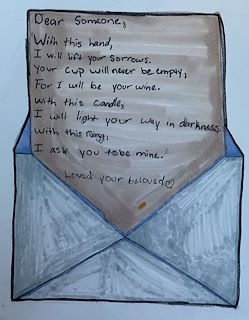 Dear Someone,
With this hand,
I will lift your sorrows.
Your cup will never be empty,
For I will be your wine.
With this candle,
I will light your way in darkness.
With this Ring,
I ask you to be mine.
Loved your beloved